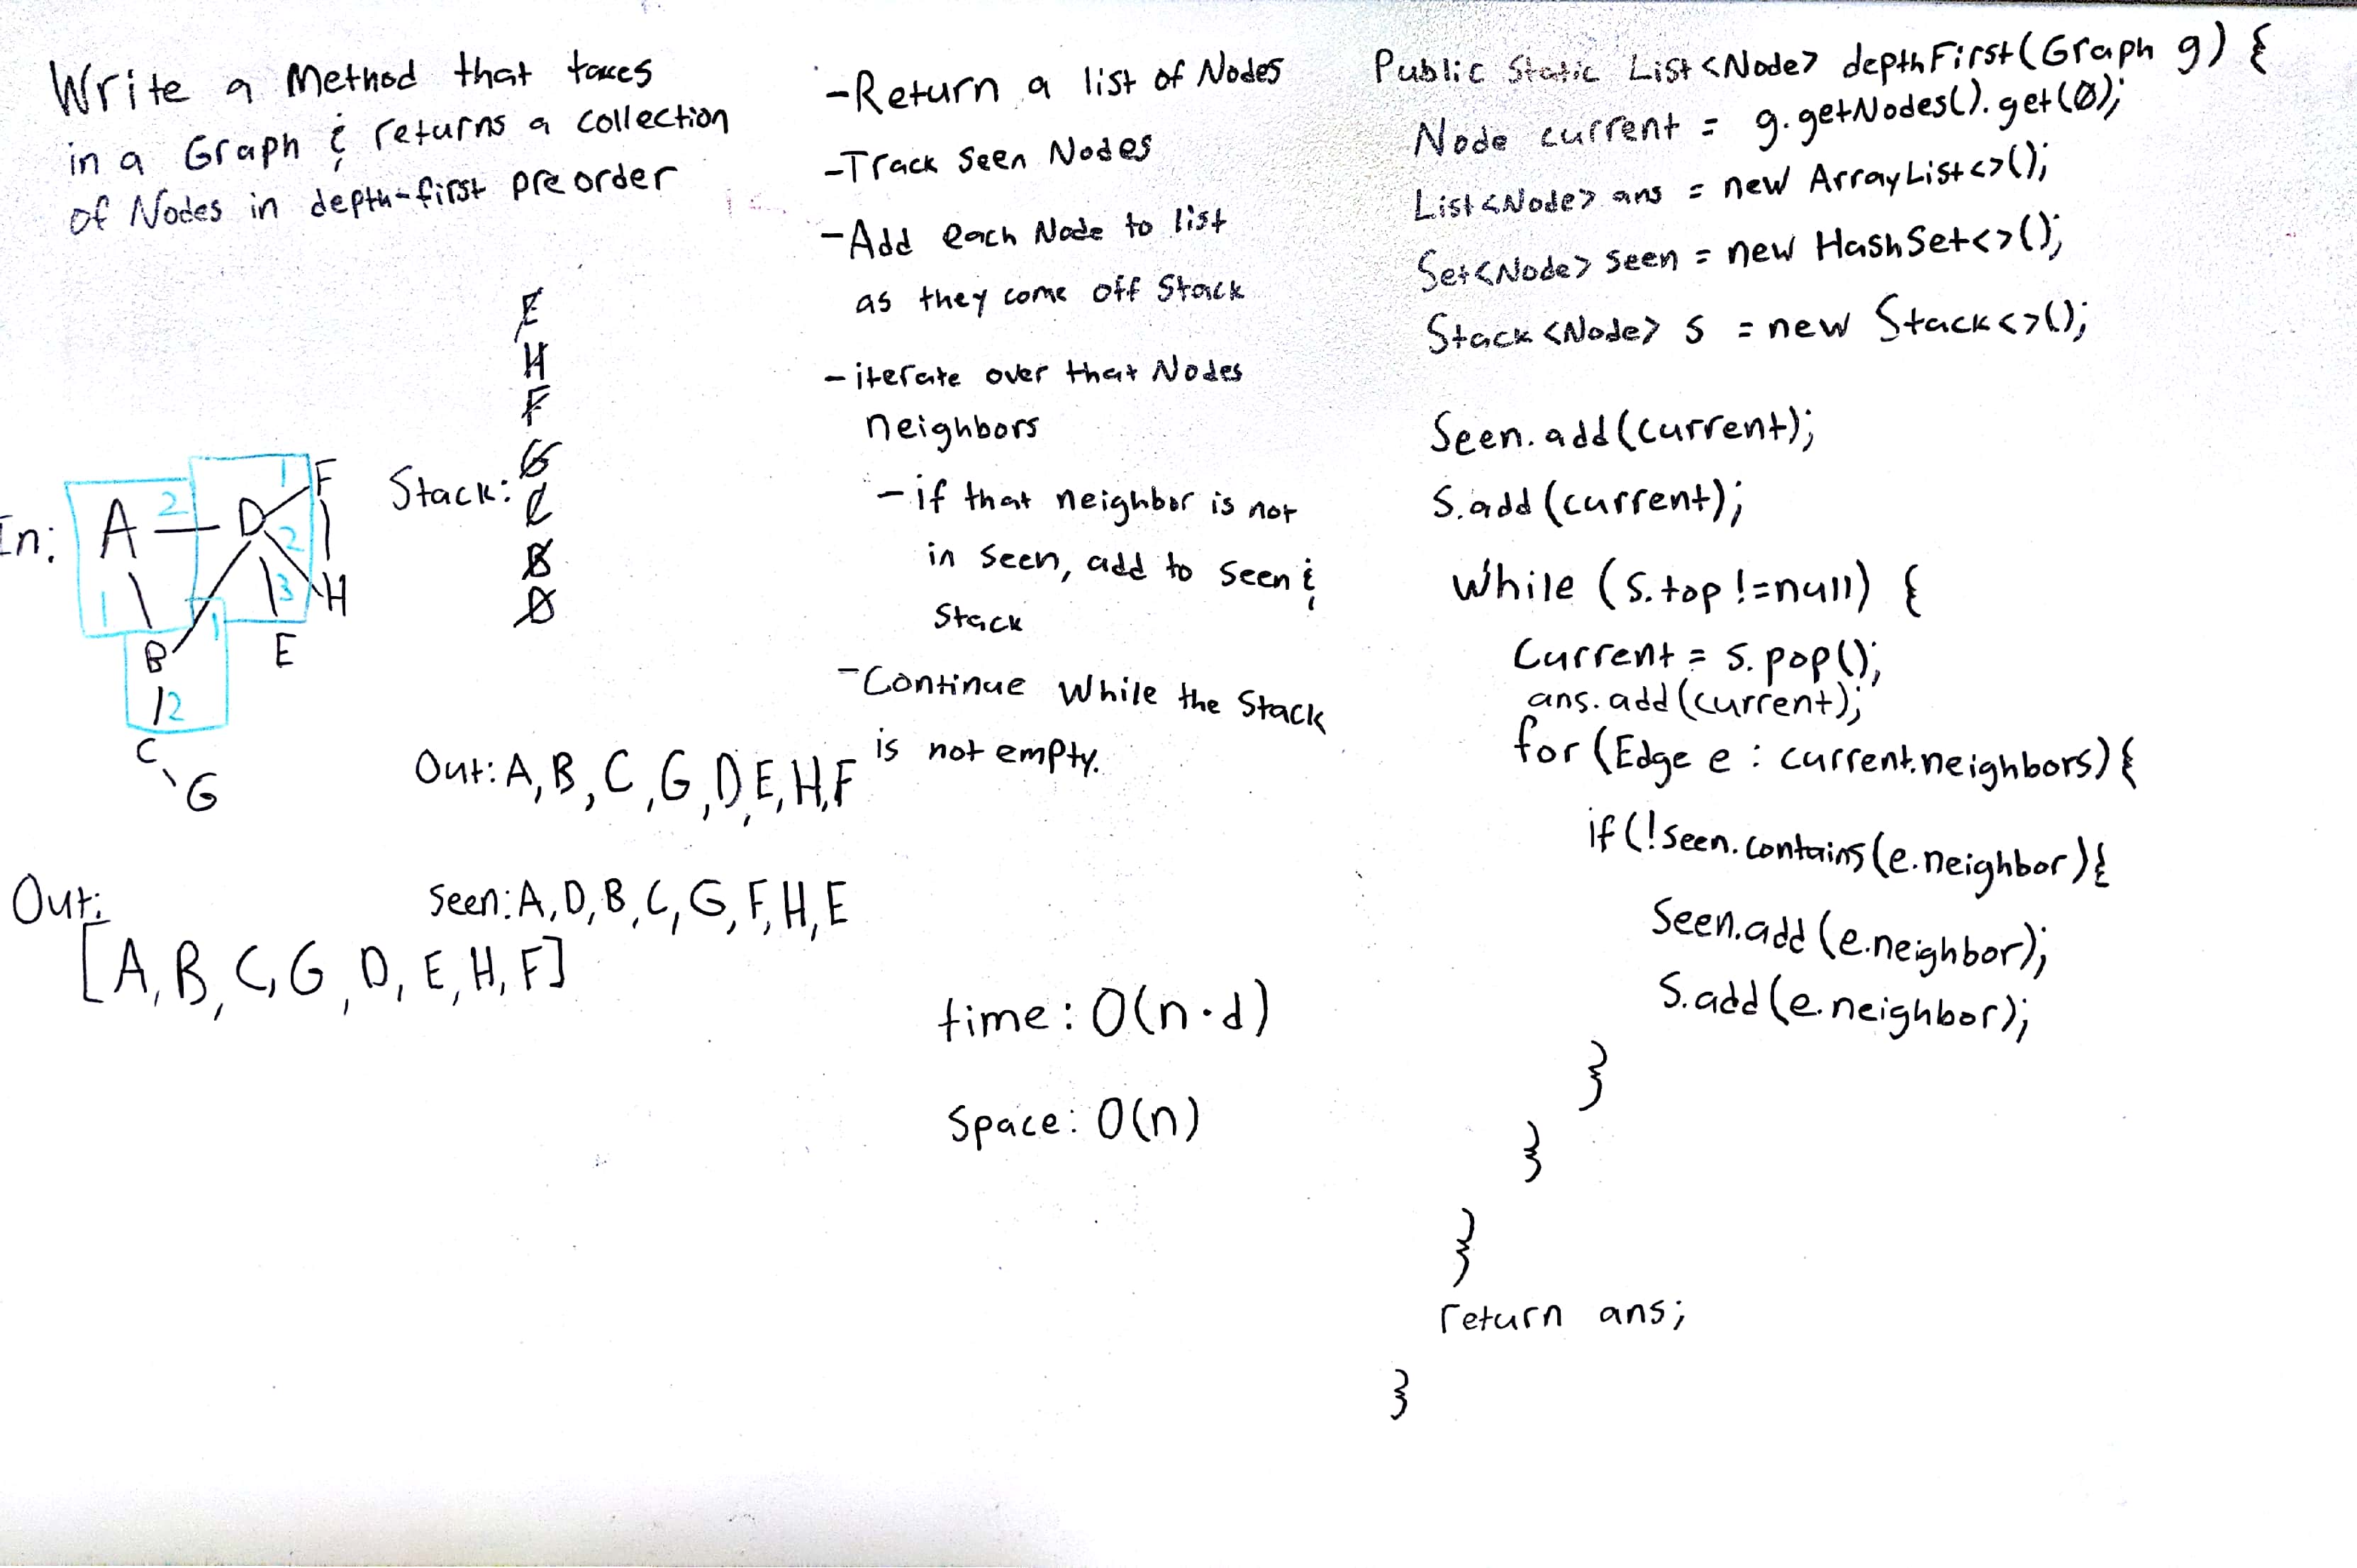 Write a Method that takes
in a Graph & returns a collection
of Nodes in depth-first preorder
In:
A 2 D 1 F
2
1 3 H
B 1 E
2
C
G
Stack:
E
H
F
G
C
B
D
Out: A, B, C, G, D, E, H, F
Seen: A, D, B, C, G, F, H, E
Out:
[A, B, C, G, D, E, H, F]
-Return a list of Nodes
-Track seen Nodes
-Add each Node to list
as they come off Stack
-iterate over that Nodes
neighbors
-if that neighbor is not
in seen, add to seen &
Stack
-Continue while the Stack
is not empty.
time: O(n·d)
Space: O(n)
Public Static List<Node> depthFirst(Graph g) {
Node current = g.getNodes().get(0);
List<Node> ans = new ArrayList<>();
Set<Node> seen = new HashSet<>();
Stack<Node> s = new Stack<>();
Seen.add(current);
S.add(current);
While (s.top !=null) {
Current = s.pop();
ans.add(current);
for (Edge e : current.neighbors){
if(!seen.contains(e.neighbor){
Seen.add(e.neighbor);
S.add(e.neighbor);
}
}
}
return ans;
}